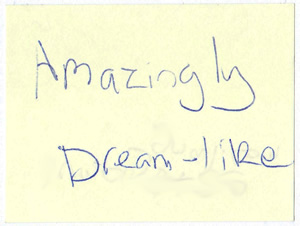 Amazingly
Dream-like